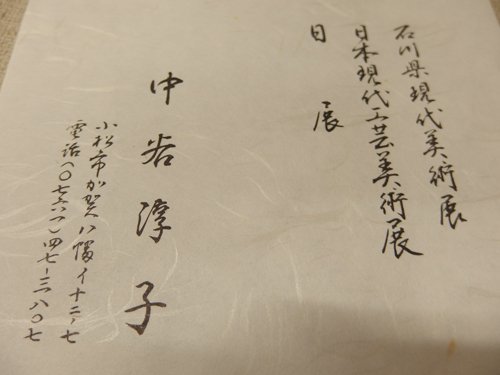 石川県現代美術展
日本現代工芸美術展
日展
中谷淳子
小松市加賀八幡イ十二、七
電話(〇七六一)四七-三八〇七